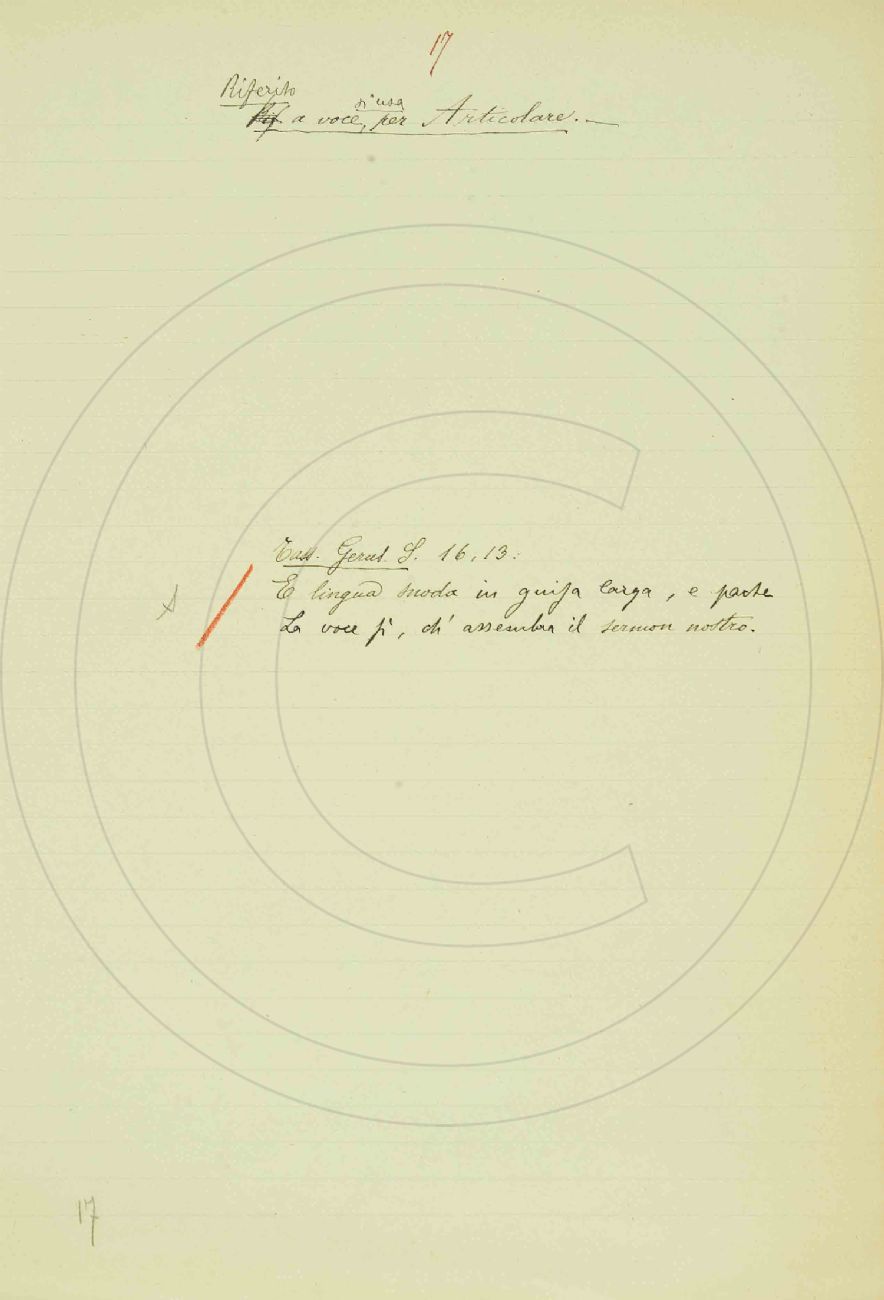 17
Riferito
Rif a voce, si usa per Articolare. —
Tass. Gerus. L. 16, 13:
E lingua snoda in guisa larga, e parte
La voce sì, ch' assembra il sermon nostro.
A
17